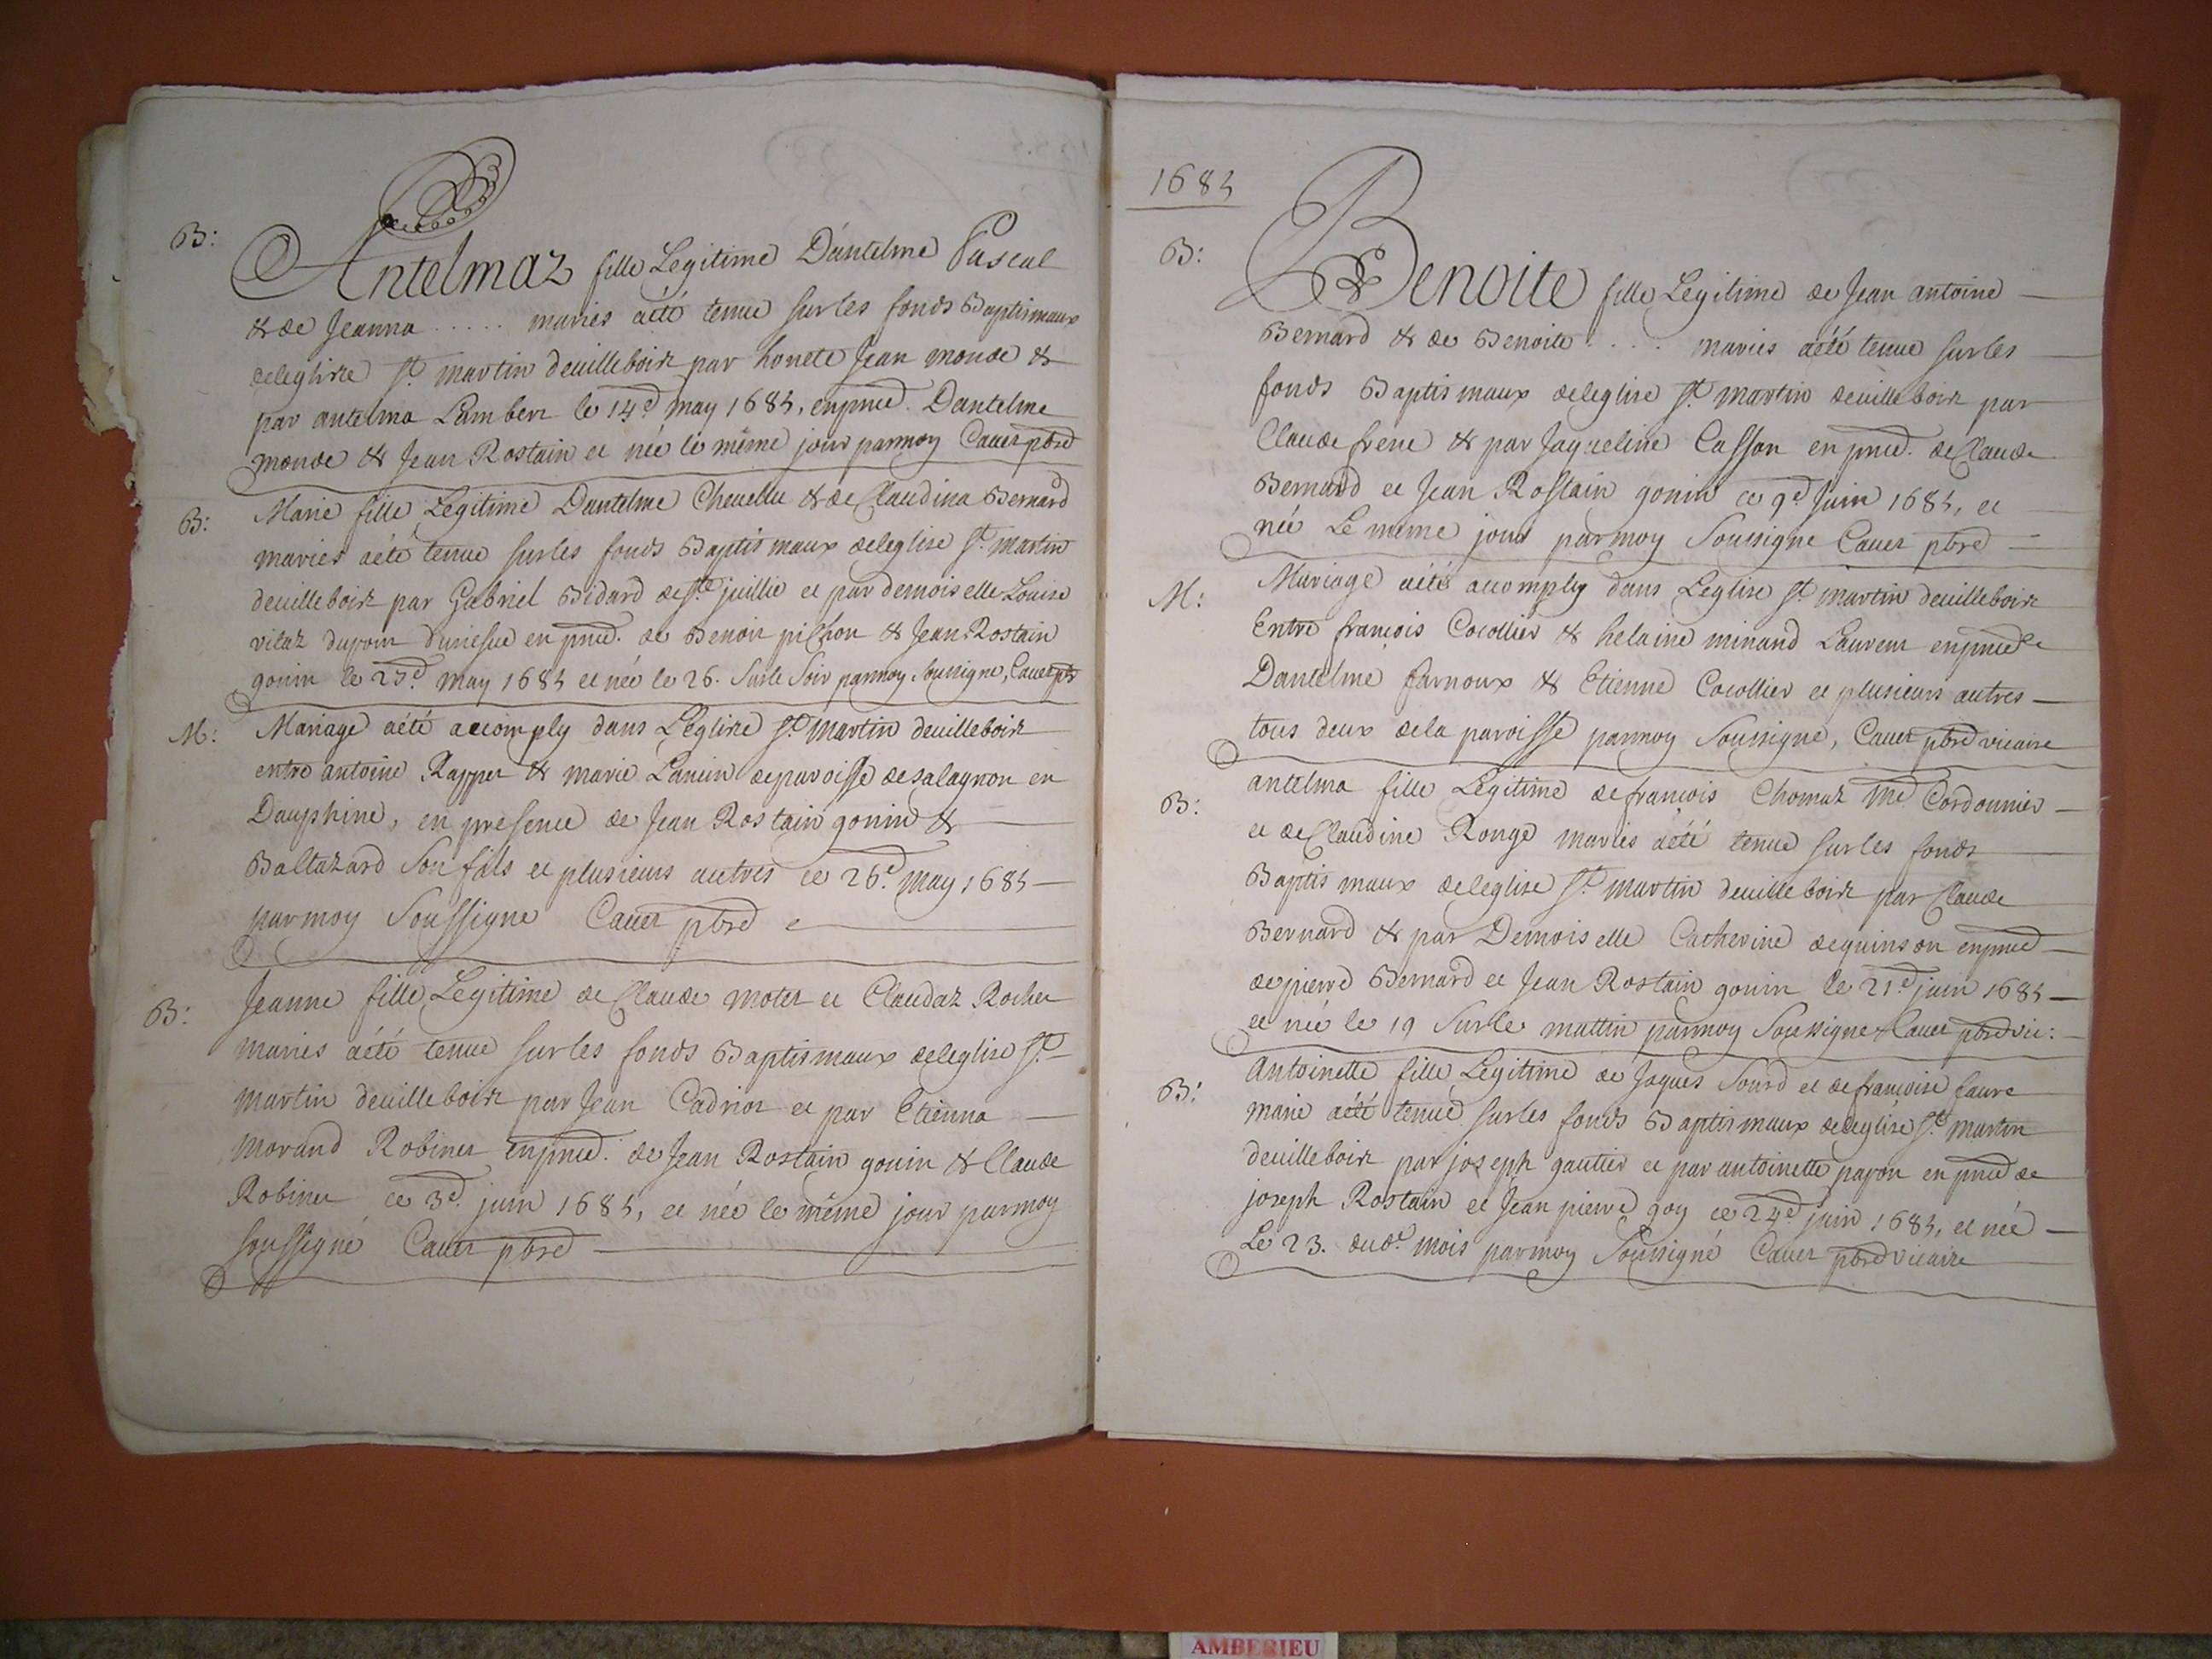 B:
Antelmaz fille Legitime D'antelme Pascal
& de Jeanna ..... maries aété tenue sur les fonds Baptismaux
deleglise St. martin deuilleboix par honete Jean monde &
par antelma Lambert le 14e may 1685, enpnce. Dantelme
monde & Jean Rostain et née le même jour parmoy Cauet pbre
B: Marie fille Legitime Dantelme Cheuellu & de Claudina Bernard
maries aété tenue sur les fonds Baptismaux deleglise St. martin
deuilleboix par Gabriel Bidard de Ste jullie et par demoiselle Louise
vilaz en pnce. de Benoit pichon & Jean Rostain
gonin le may 1685 et née le 26. Surle Soir parmoy Soussigne, Cauet pbr
M: Mariage aété accomply dans L'eglise St. martin deuilleboix
entre antoine Rappet & marie Lancin deparoisse desalagnon en
Dauphine, en presence de Jean Rostain gonin &
Baltazard Son fils et plusieurs autres ce 26e. may 1685
parmoy Soussigne Cauet pbre
B: Jeanne fille Legitime de Claude motet et Claudaz Rochet
maries aété tenue sur les fonds Baptismaux deleglise St.
martin deuilleboix par Jean Cadrior et par Etienna
morand Robinet enpnce. de Jean Rostain gonin & Claude
Robinet ce 3e. juin 1685, et née le même jour parmoy
soussigné Cauet pbre
1685
B:
Benoite fille Legitime de Jean antoine
Bernard & de Benoite ..... maries aété tenue sur les
fonds Baptismaux deleglise St. martin deuilleboix par
Claude frene & par Jaqueline Casson en pnce. de Claude
Bernard et Jean Rostain gonin ce 9e Juin 1685, et
née Le meme jour parmoy Soussigne Cauet pbre
M: Mariage aété accomply dans Leglise St. martin deuilleboix
Entre francois Cocollier & helaine minand Laurent enpnce
Dantelme farnoux & Etienne Cocollier et plusieurs autres
tous deux dela paroisse parmoy Soussigne, Cauet pbre vicaire
B: antelma fille Legitime defrancois Chomaz Me Cordonnier
et de Claudine Rouge maries aété tenue sur les fonds
Baptismaux deleglise St. martin deuilleboix par Claude
Bernard & par Demoiselle Catherine dequinson enpnce
de pierre Bernard et Jean Rostain gonin le 21e juin 1685
et née le 19 Surle mattin parmoy Soussigne Cauet pbre vic:
B: Antoinette fille Legitime de Jaques Sourd et defrancoise faure
marie aété tenue sur les fonds Baptismaux deleglise St. martin
deuilleboix par joseph gautier et par antoinette payon en pnce de
joseph Rostain et Jean pierre goy ce 24e juin 1685, et née
Le 23. dud. mois parmoy Soussigné Cauet pbre vicaire
AMBERIEU